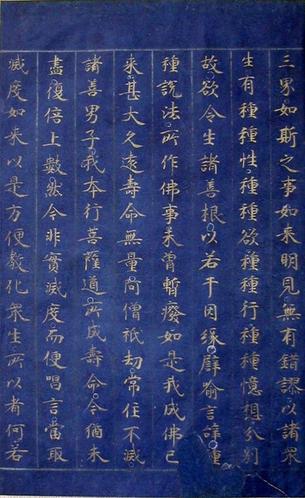 三界如斯之事如來明見無有錯謬以諸衆
生有種種性種種欲種種行種種憶想分別
故欲令生諸善根以若干因縁譬喻言辭種
種說法所作佛事未曾暫癈如是我成佛已
來甚大久遠壽命無量阿僧祇劫常住不滅
諸善男子我本行菩薩道所成壽命今猶未
盡復倍上數然今非實滅度而便唱言當取
滅度如來以是方便教化衆生所以者何若